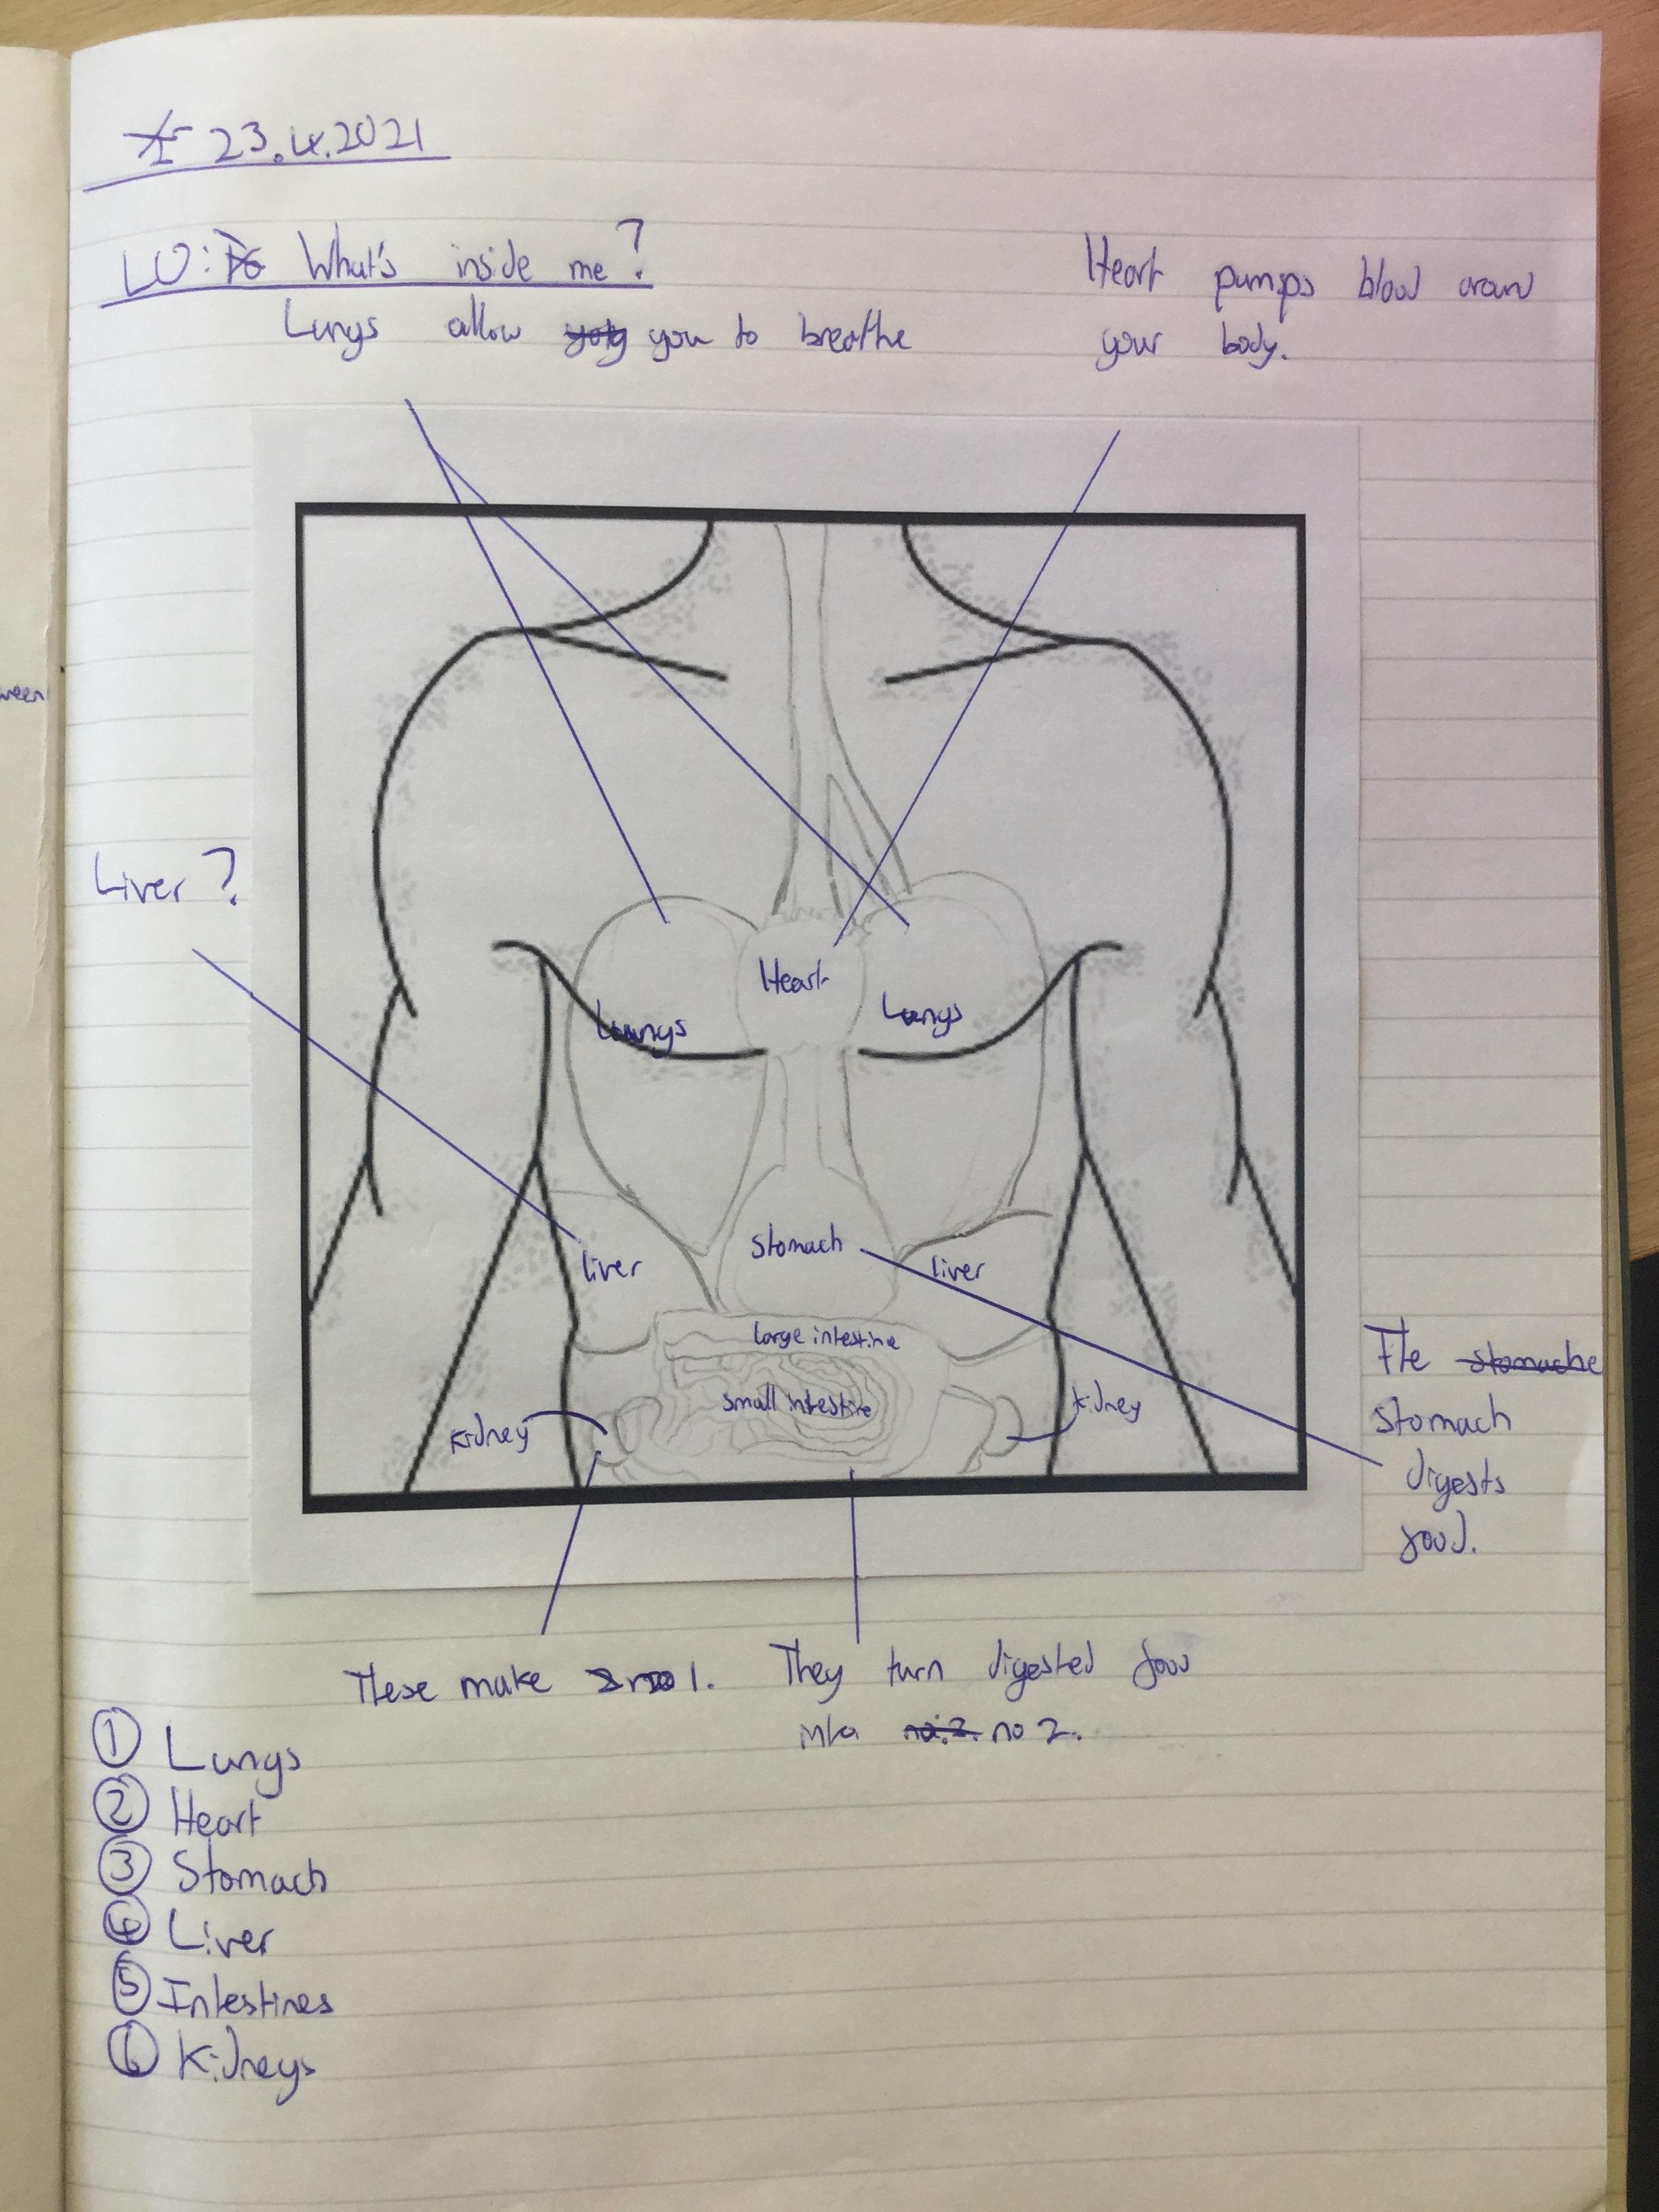 23.4.2021
LO: What's inside me?
Lungs allow you to breathe
Heart pumps blood aroun
your body.
ween
Liver ?
Heart
Lungs
Lungs
Stomach
liver
liver
large intestine
small intestine
kidney
kidney
The stomache
stomach
digests
food.
These make no 1.
They turn digested food
into no.2. no 2.
① Lungs
② Heart
③ Stomach
④ Liver
⑤ Intestines
⑥ Kidneys